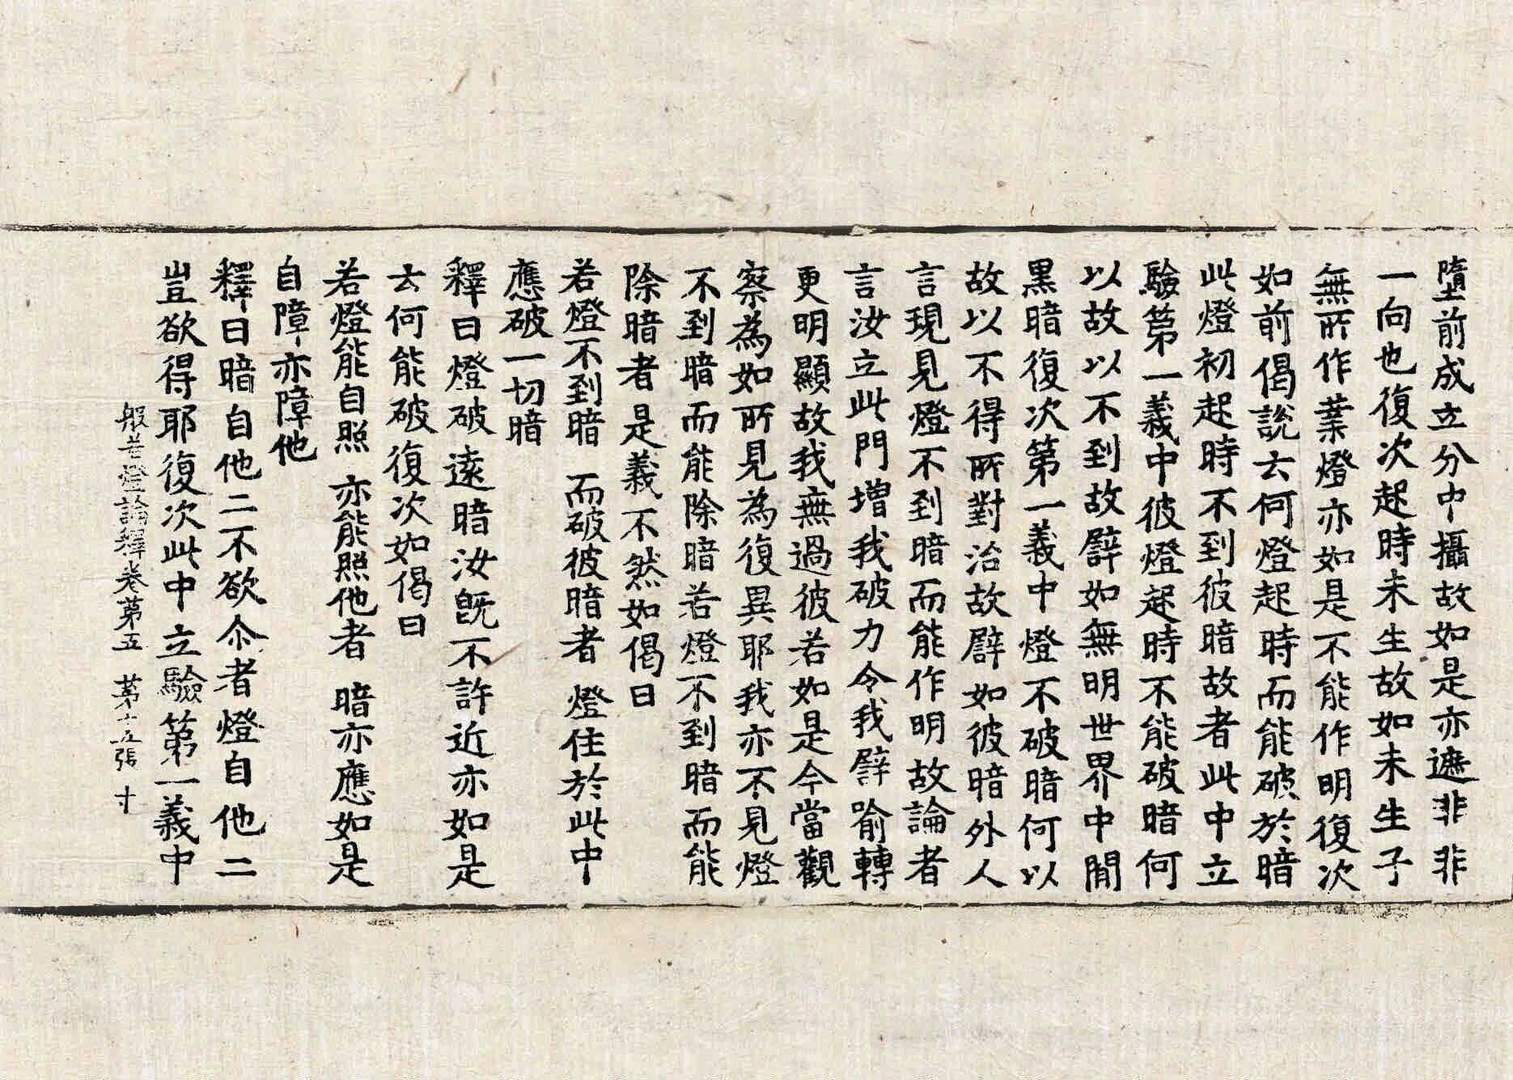 墮前成立分中攝故如是亦遮非非
一向也復次起時未生故如未生子
無所作業燈亦如是不能作明復次
如前偈說云何燈起時而能破於暗
此燈初起時不到彼暗故者此中立
驗第一義中彼燈起時不能破暗何
以故以不到故譬如無明世界中間
黑暗復次第一義中燈不破暗何以
故以不得所對治故譬如彼暗外人
言現見燈不到暗而能作明故論者
言汝立此門增我破力令我譬喻轉
更明顯故我無過彼若如是今當觀
察為如所見為復異耶我亦不見燈
不到暗而能除暗若燈不到暗而能
除暗者是義不然如偈曰
若燈不到暗 而破彼暗者 燈住於此中
應破一切暗
釋曰燈破遠暗汝既不許近亦如是
云何能破復次如偈曰
若燈能自照 亦能照他者 暗亦應如是
自障亦障他
釋曰暗自他二不欲尒者燈自他二
豈欲得耶復次此中立驗第一義中
般若燈論釋卷第五 第十五張 寸